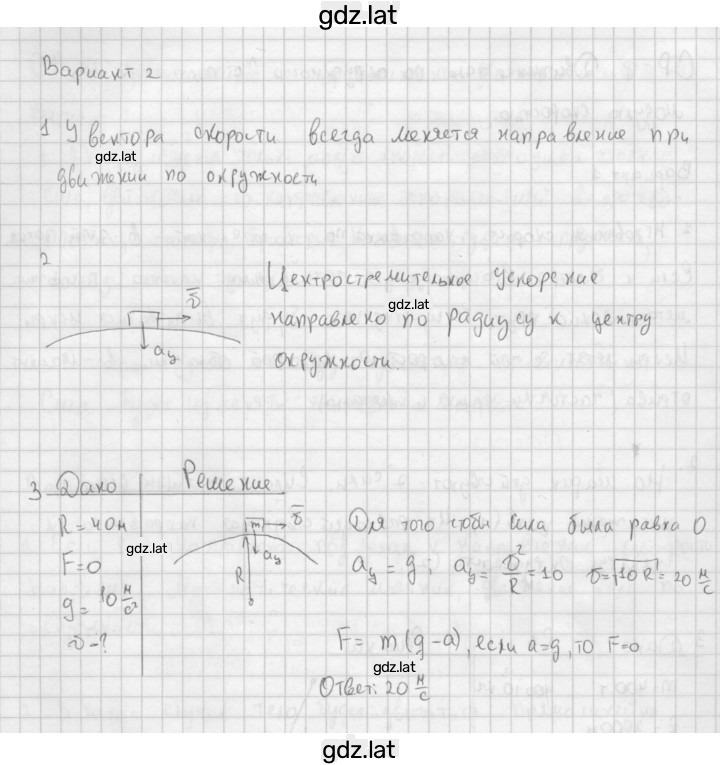 gdz.lat
Вариант 2
1 У вектора скорости всегда меняется направление при
gdz.lat
движении по окружности
2
v̅
aц
Центростремительное ускорение
gdz.lat
направлено по радиусу к центру
окружности.
3 Дано Решение
R = 40м
F = 0
g = 10 м/с²
v - ?
gdz.lat
m v̅
aц
R
Для того чтобы сила была равна 0
aц = g; aц = v²/R = 10 v = √10 R = 20 м/с
F = m (g - a), если a = g, то F = 0
gdz.lat
Ответ: 20 м/с
gdz.lat